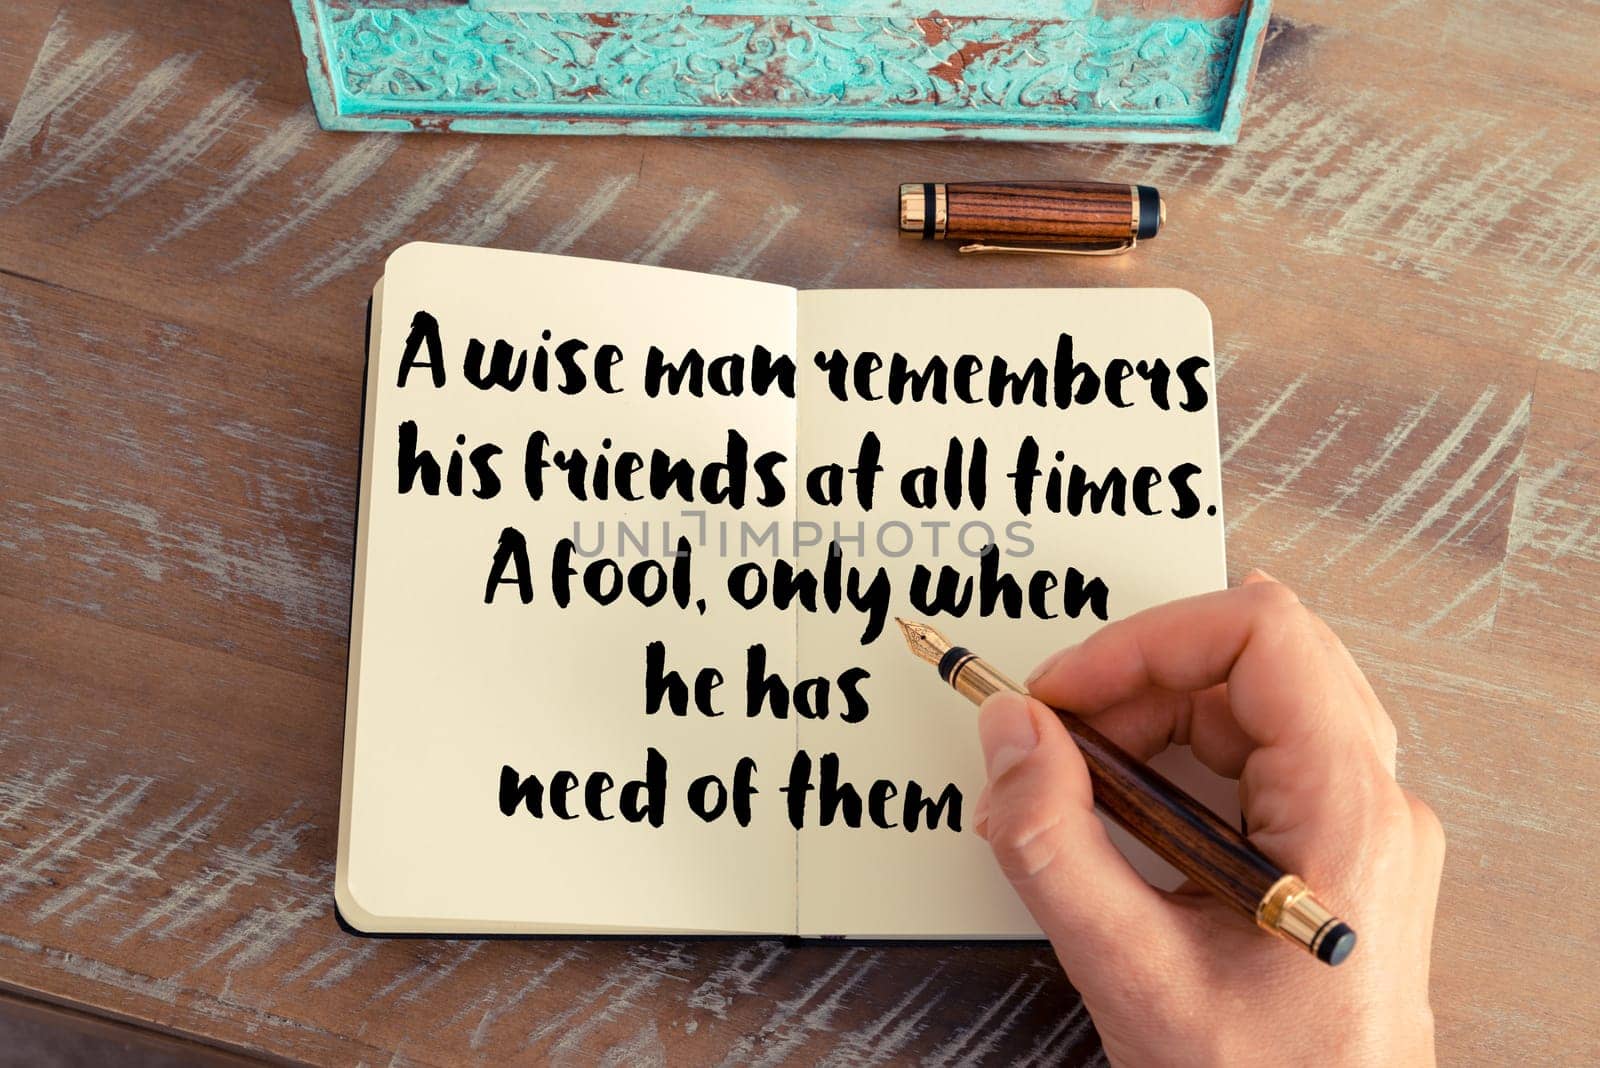 A wise man remembers
his friends at all times.
UNLIMPHOTOS
A fool, only when
he has
need of them